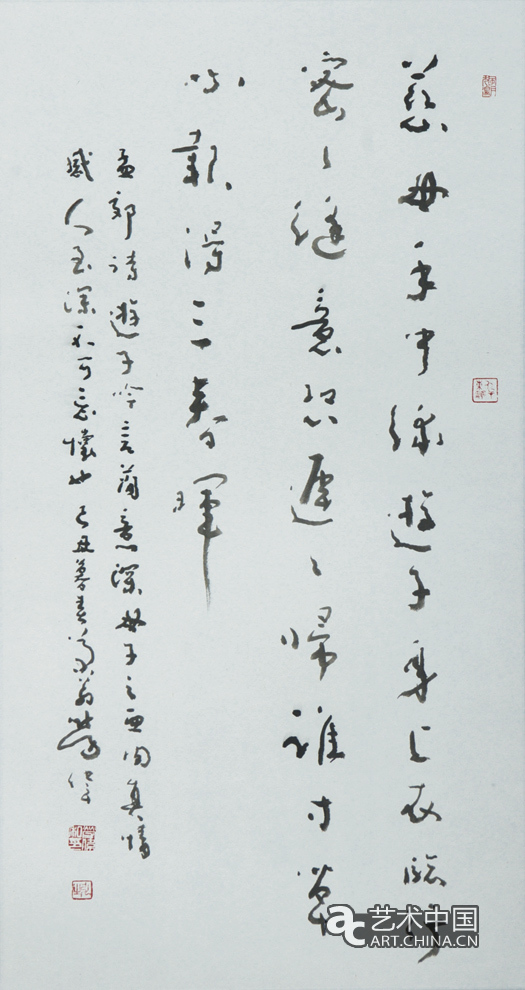 慈母手中線遊子身上衣臨行
密々縫意恐遲々歸誰寸草
心報得三春暉
孟郊詩遊子吟言簡意深母子之間真情
感人至深不可忘懷也己丑暮春
ac 艺术中国
ART.CHINA.CN